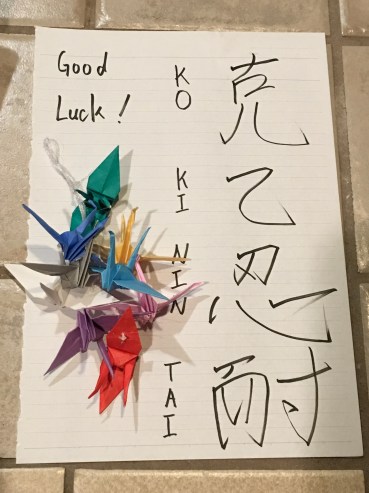 Good
Luck!
KO KI NIN TAI
克己忍耐